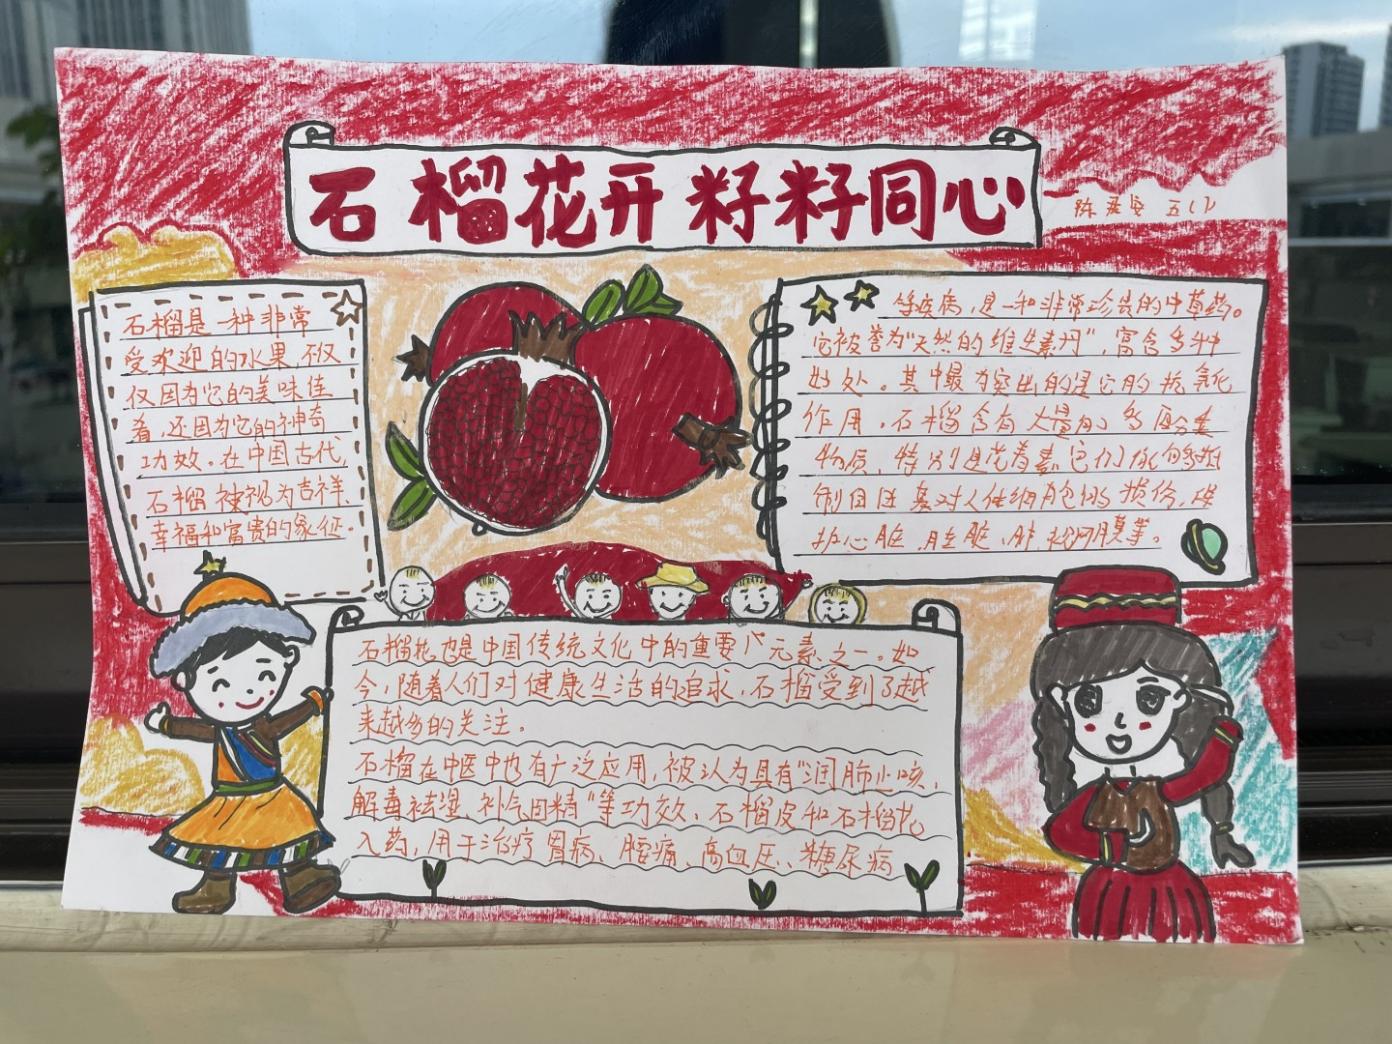 石榴花开 籽籽同心
陈 安 五(1)
石榴是一种非常
受欢迎的水果,不仅
仅因为它的美味佳
肴,还因为它的神奇
功效。在中国古代,
石榴被视为吉祥、
幸福和富贵的象征。
石榴花也是中国传统文化中的重要元素之一。如
今,随着人们对健康生活的追求,石榴受到了越
来越多的关注。
石榴在中医中也有广泛应用,被认为具有"润肺止咳,
解毒祛湿、补气固精"等功效。石榴皮和石榴花
入药,用于治疗胃病、腰痛、高血压、糖尿病
等疾病,是一种非常珍贵的中草药。
它被誉为"天然的维生素丹",富含多种
好处。其中最为突出的是它的抗氧化
作用。石榴含有大量的多酚类
物质、特别是花青素,它们能够抵
制自由基对人体细胞的损伤,保
护心脏、肝脏、肺、视网膜等。